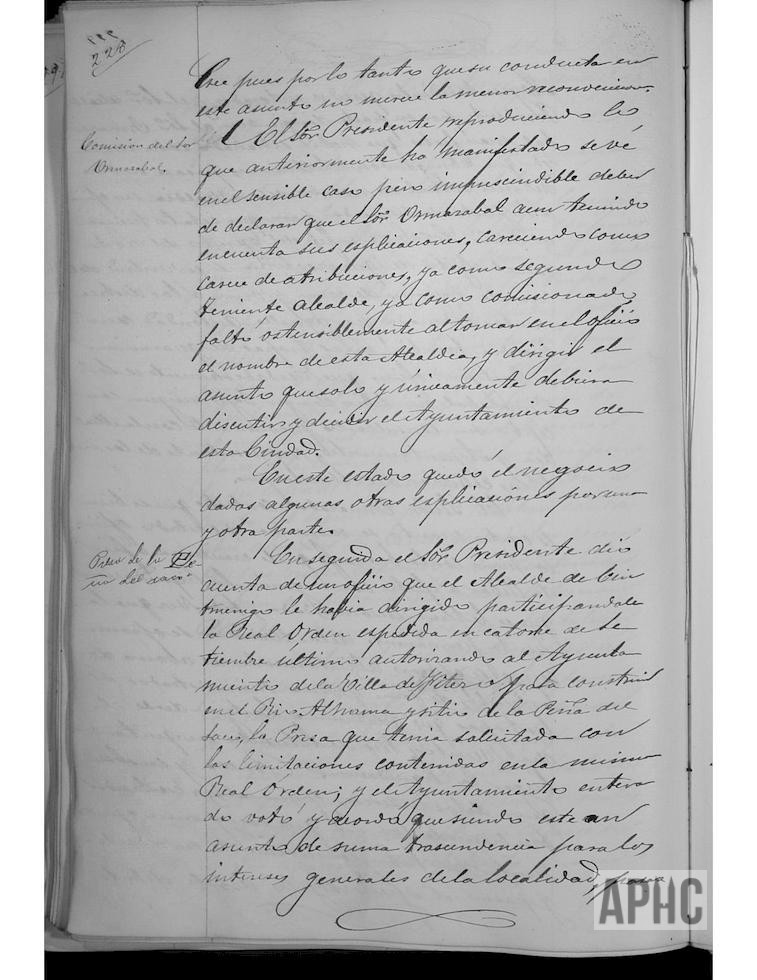 228
Cree pues por lo tanto que su conducta en
este asunto no merece la menor reconvencion.
Comision del Sor
Ormazabal.
El Sor Presidente reproduciendo lo
que anteriormente ha manifestado se vé
en el sensible caso pero imprescindible deber
de declarar que el Sor Ormazabal aun teniendo
en cuenta sus esplicaciones, careciendo como
carece de atribuciones, ya como segundo
teniente alcalde, ya como comisionado
faltó ostensiblemente al tomar en el oficio
el nombre de esta Alcaldia, y dirigir el
asunto que solo y únicamente debiera
discutir y decidir el Ayuntamiento de
esta Ciudad.
En este estado quedó el negocio
dadas algunas otras esplicaciones por una
y otra parte.
Presa de la Pe-
ña del saco
En seguida el Sor Presidente dió
cuenta de un oficio que el Alcalde de Cin
truenigo le habia dirigido participandole
la Real Orden espedida en catorce de Se
tiembre último autorizando al Ayunta
miento de la Villa de Fitero para construir
en el Rio Alhama y sitio de la Peña del
Saco, la Presa que tenia solicitada con
las limitaciones contenidas en la misma
Real Orden; y el Ayuntamiento entera
do votó y acordó que siendo este un
asunto de suma trascendencia para los
intereses generales de la localidad, pasa
APHC